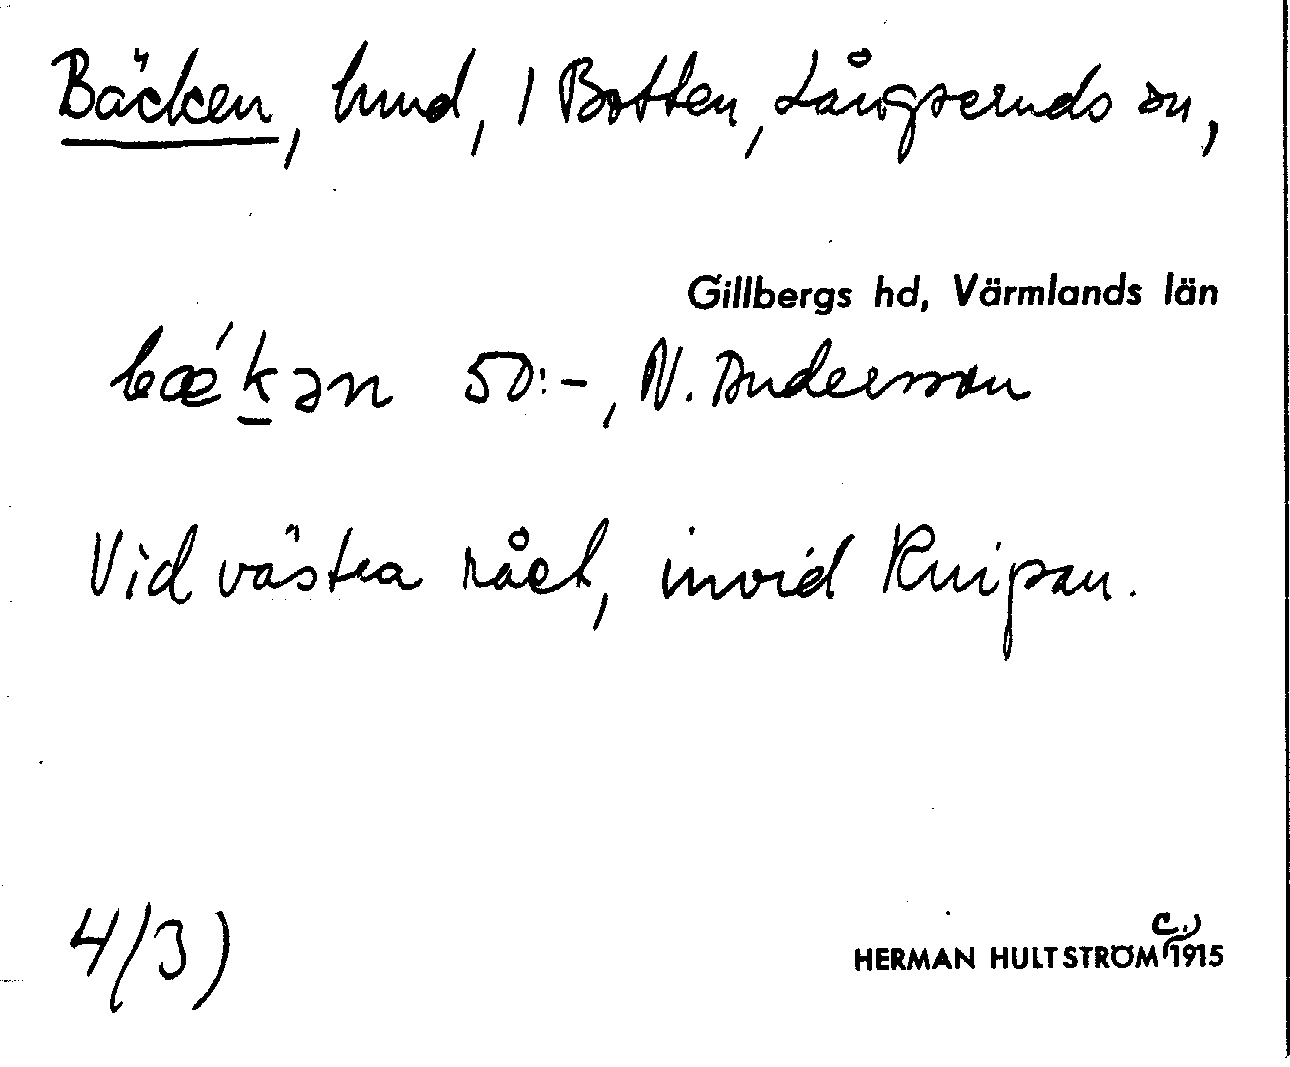 Bäcken, hmd, 1 Botten, Långseruds sn,
Gillbergs hd, Värmlands län
bæ´k̲ən 50:-, N. Andersson
Vid västra rået, invid Knipan.
4/3)
HERMAN HULTSTRÖM (c.) 1915